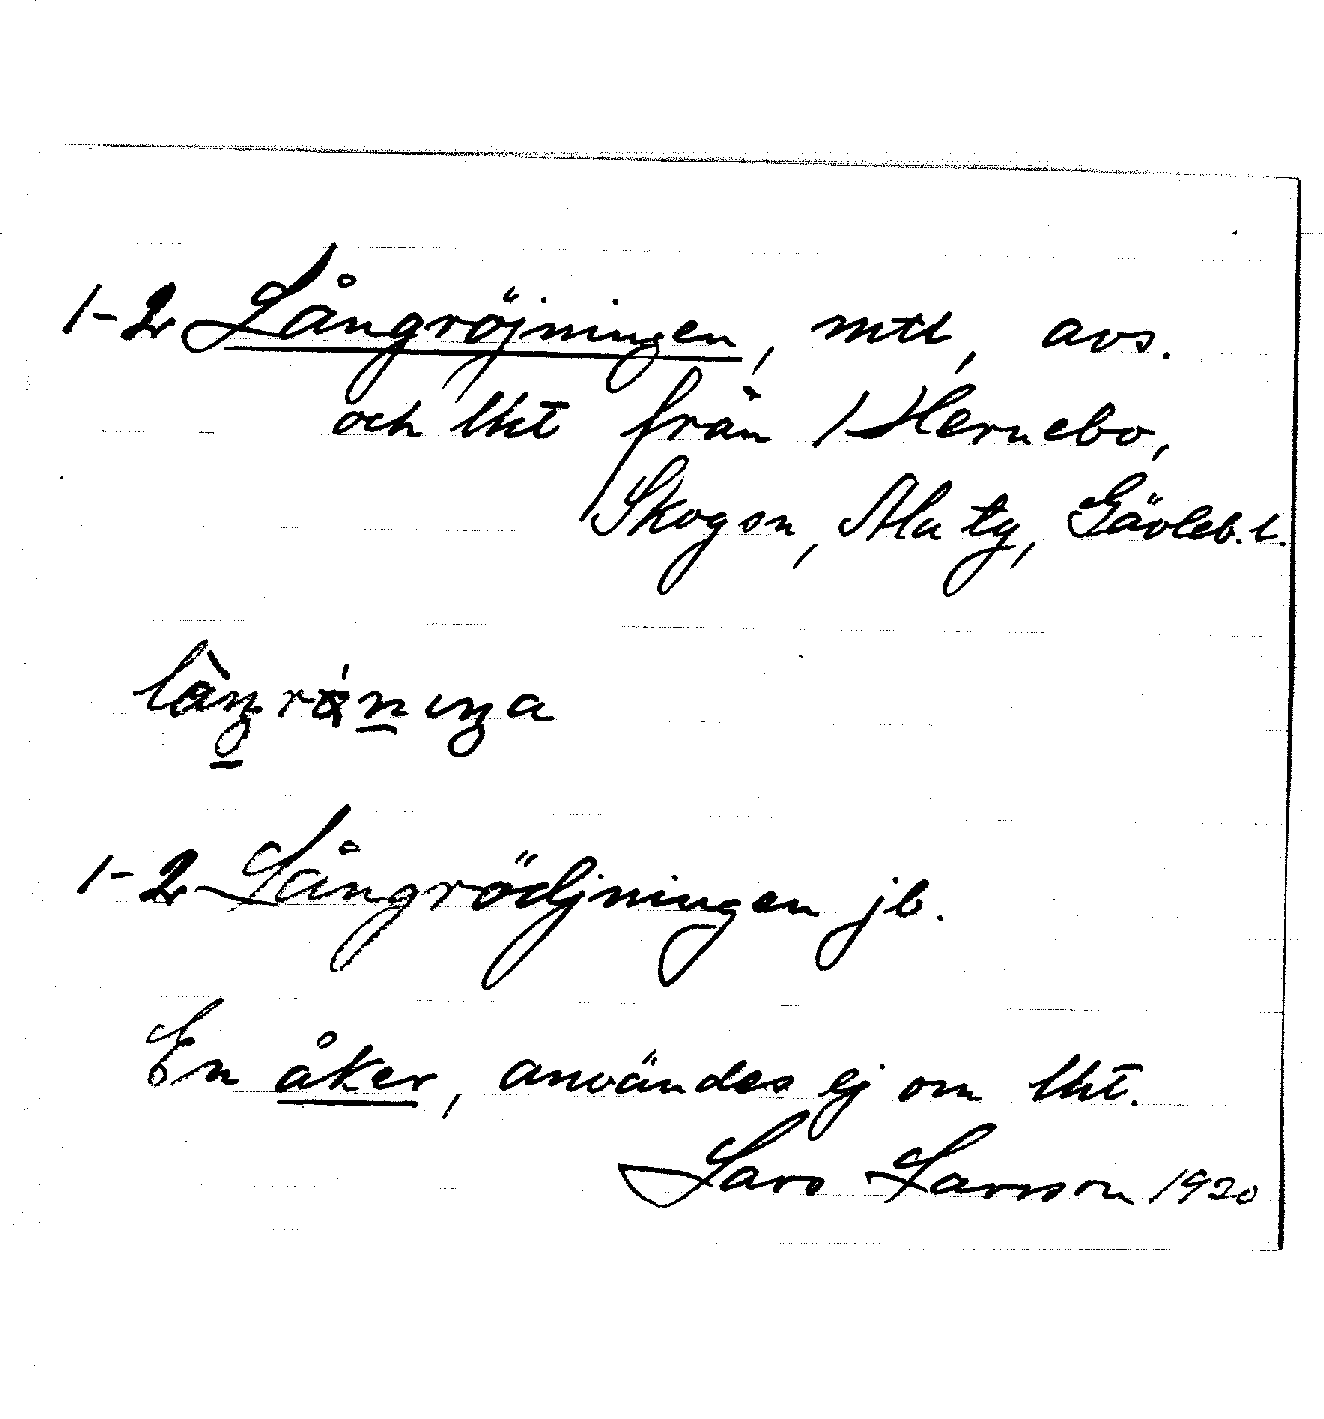 1-2 Långröjningen, mtl, avs.
och lkt från / Hernebo,
Skogsn, Ala tg, Gävleb. l.
1-2 Långrödjningen jb.
En åker, användes ej om lkt.
Lars Larsson 1920